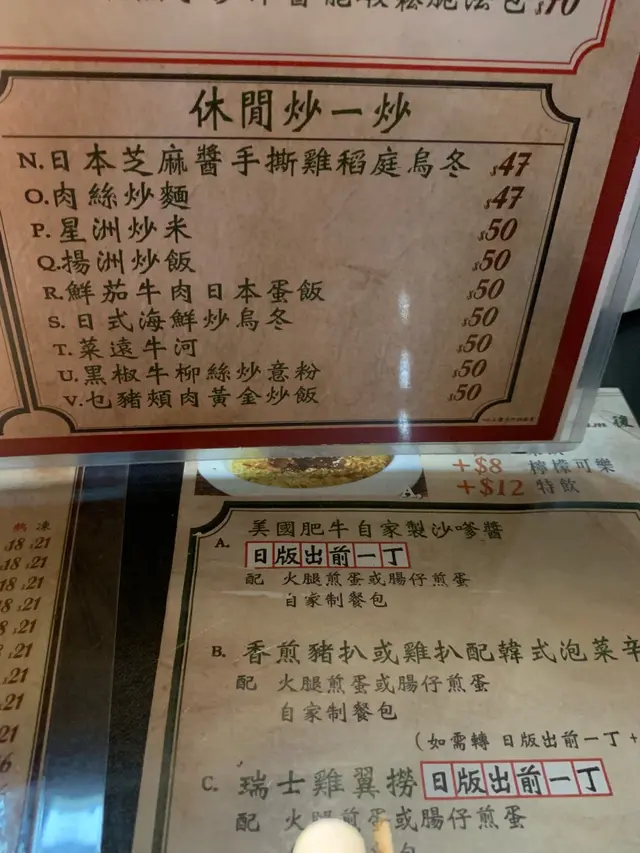 $10
休閒炒一炒
N.日本芝麻醬手撕雞稻庭烏冬 $47
O.肉絲炒麵 $47
P.星洲炒米 $50
Q.揚洲炒飯 $50
R.鮮茄牛肉日本蛋飯 $50
S.日式海鮮炒烏冬 $50
T.菜遠牛河 $50
U.黑椒牛柳絲炒意粉 $50
V.乜豬頰肉黃金炒飯 $50
後
+$8 檸檬可樂
+$12 特飲
熱 凍
18 $21
18 $21
18 $21
18 $21
8 $21
$21
$21
$21
21
A. 美國肥牛自家製沙嗲醬
日版出前一丁
配 火腿煎蛋或腸仔煎蛋
自家制餐包
B. 香煎豬扒或雞扒配韓式泡菜辛
配 火腿煎蛋或腸仔煎蛋
自家制餐包
(如需轉 日版出前一丁 +
C. 瑞士雞翼撈日版出前一丁
配 火腿煎蛋或腸仔煎蛋